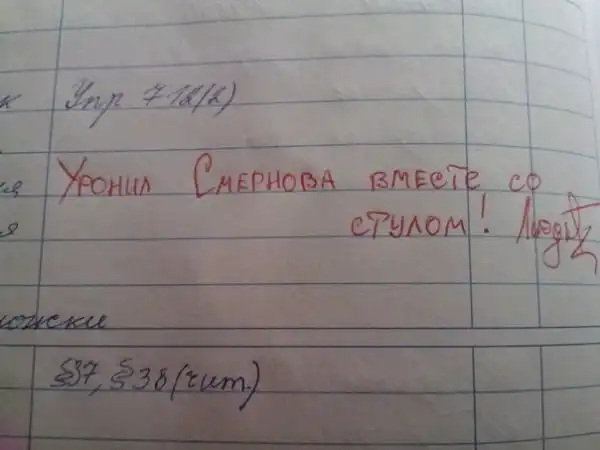 к Упр 718(2)
Уронил Смернова вместе со
стулом!
§37, §38 (чит.)